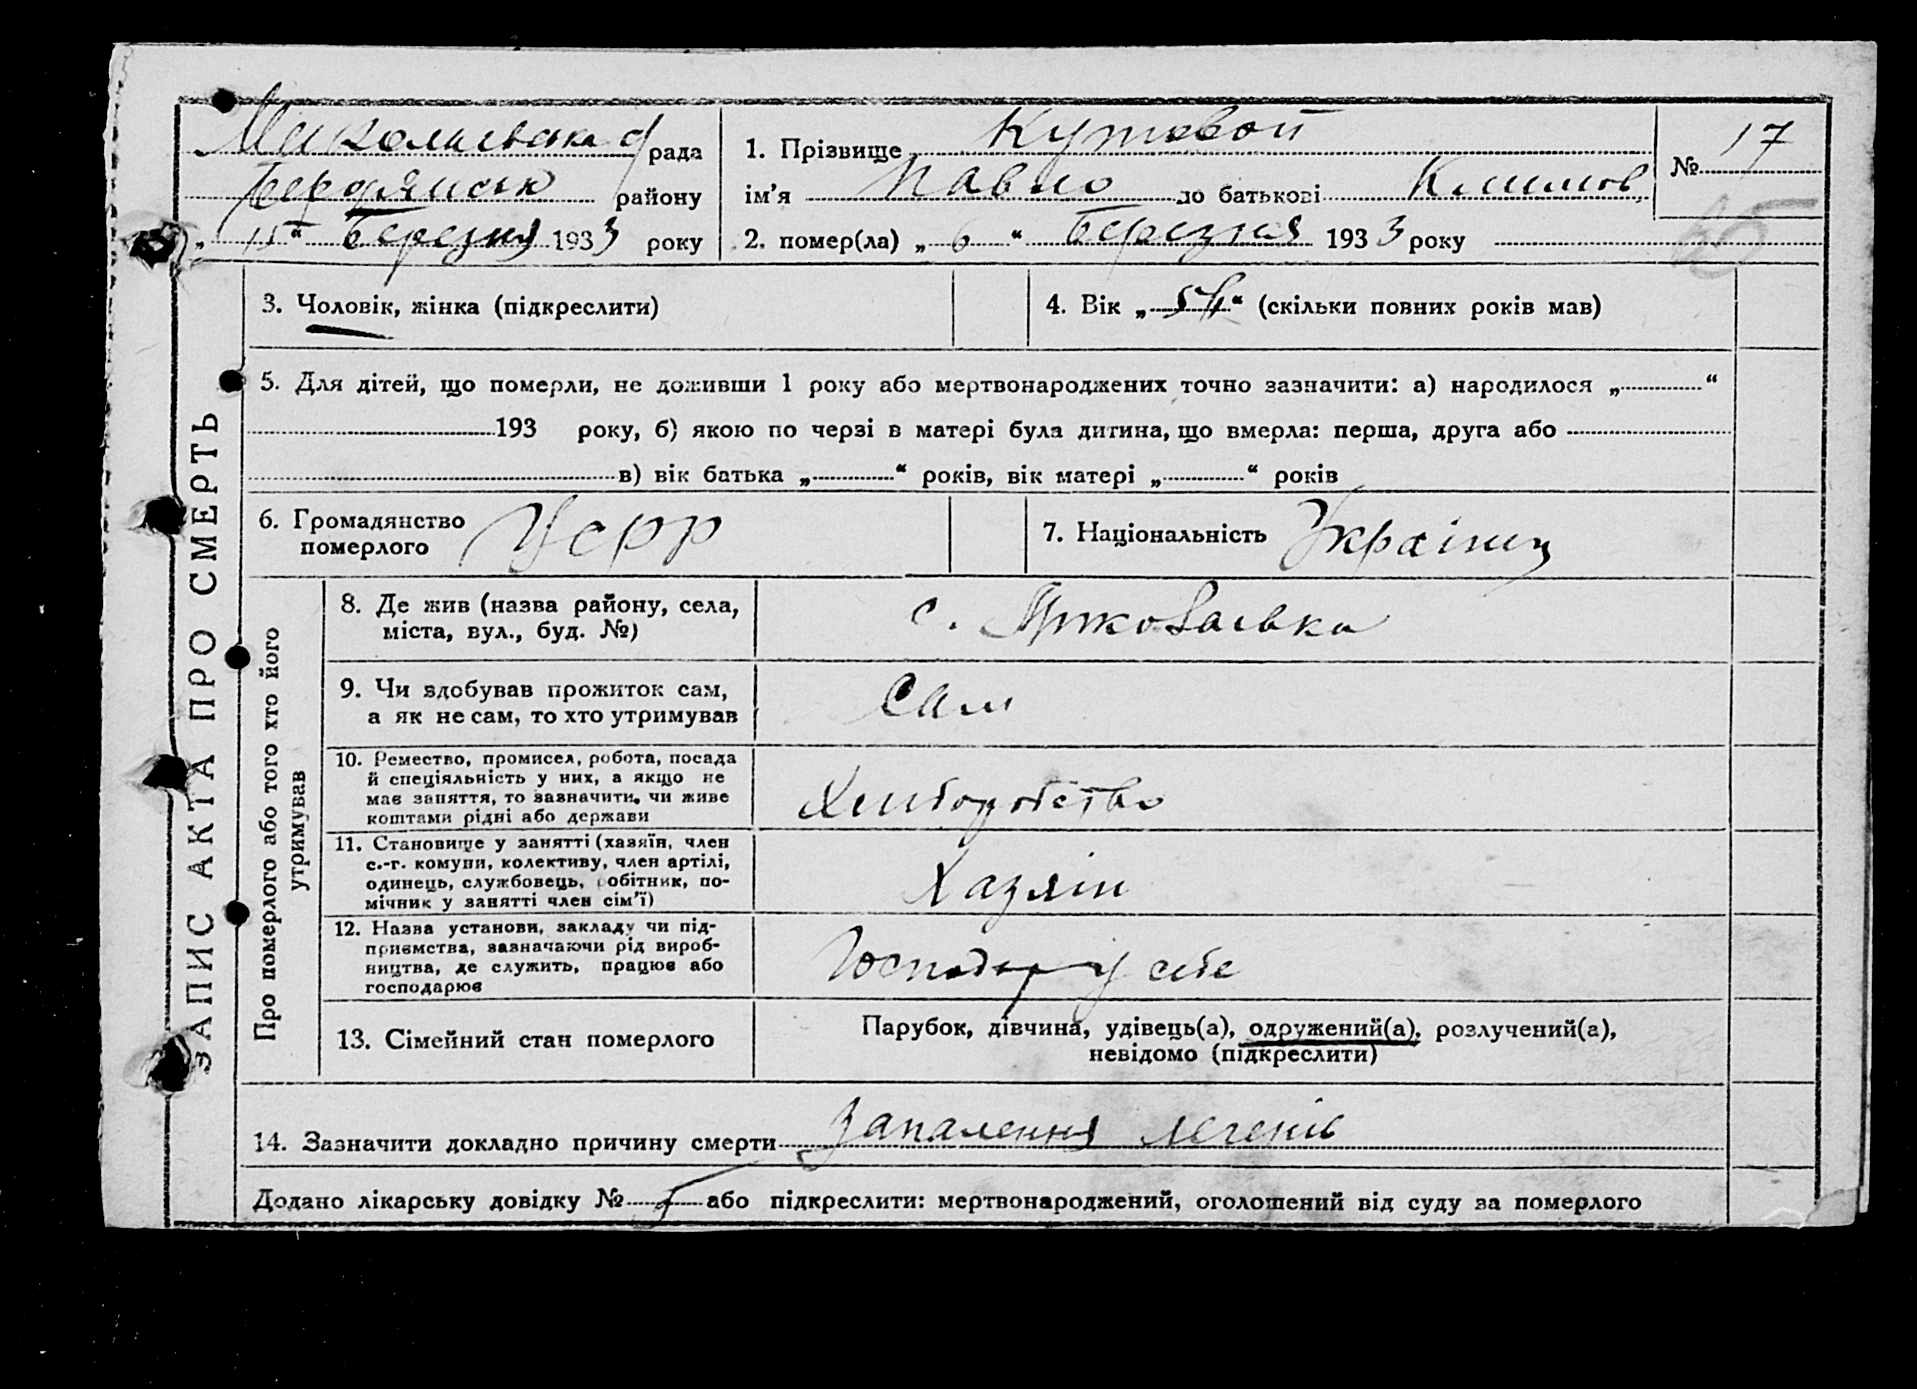 Миколаївська с/рада
Бердянськ району
„15“ Березня 1933 року
1. Прізвище Кутовой
ім'я Павло по батькові Климов
2. помер(ла) „6“ Березня 1933 року
№ 17
65
3. Чоловік, жінка (підкреслити)
4. Вік „54“ (скільки повних років мав)
5. Для дітей, що померли, не доживши 1 року або мертвонароджених точно зазначити: а) народилося „ “
193 року, б) якою по черзі в матері була дитина, що вмерла: перша, друга або
в) вік батька „ “ років, вік матері „ “ років
6. Громадянство
померлого
Усрр
7. Національність Українец
ЗАПИС АКТА ПРО СМЕРТЬ
Про померлого або того хто його
утримував
8. Де жив (назва району, села,
міста, вул., буд. №)
с.
9. Чи здобував прожиток сам,
а як не сам, то хто утримував
Сам
10. Ремество, промисел, робота, посада
й спеціяльність у них, а якщо не
має заняття, то зазначити, чи живе
коштами рідні або держави
Хлиборобство
11. Становище у занятті (хазяїн, член
с.-г. комуни, колективу, член артілі,
одинець, службовець, робітник, по-
мічник у занятті член сім'ї)
Хазяін
12. Назва установи, закладу чи під-
приємства, зазначаючи рід вироб-
ництва, де служить, працює або
господарює
Господар у себе
13. Сімейний стан померлого
Парубок, дівчина, удівець(а), одружений(а), розлучений(а),
невідомо (підкреслити)
14. Зазначити докладно причину смерти Запалення легенів
Додано лікарську довідку № або підкреслити: мертвонароджений, оголошений від суду за померлого